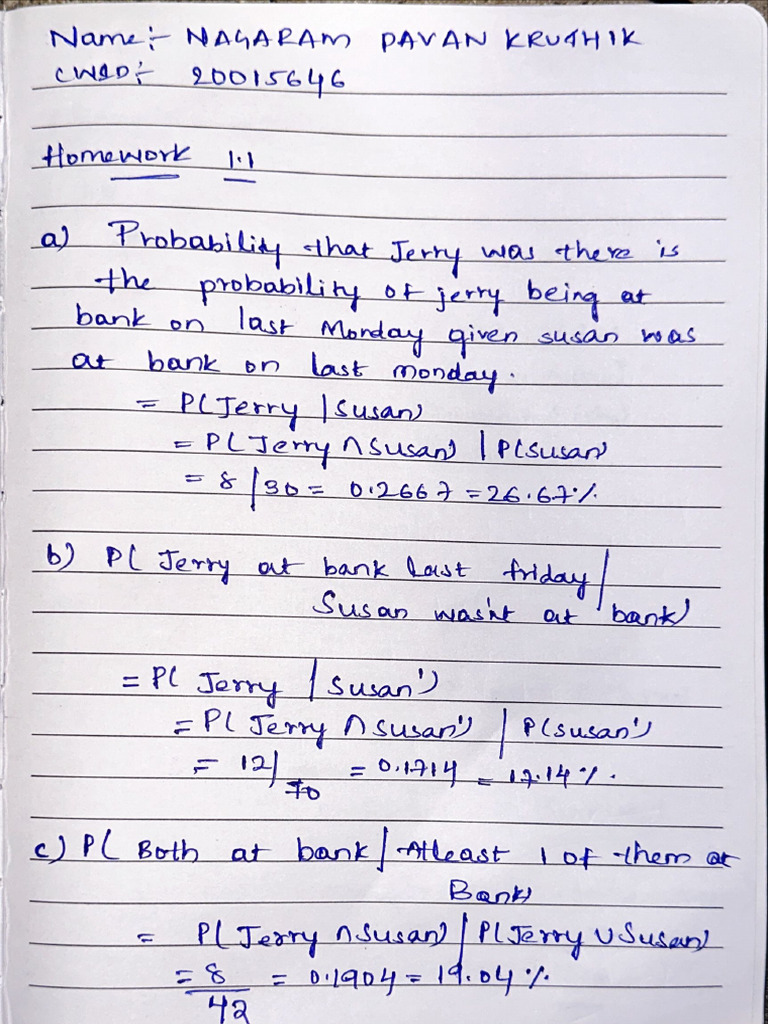 Name:- NAGARAM PAVAN KRUTHIK
CWID:- 20015646
Homework 1.1
a) Probability that Jerry was there is
the probability of jerry being at
bank on last Monday given susan was
at bank on last monday.
= P(Jerry | Susan)
= P(Jerry ∩ Susan) | P(Susan)
= 8 / 30 = 0.2667 = 26.67%
b) P( Jerry at bank last friday /
Susan wasn't at bank)
= P( Jerry | Susan')
= P( Jerry ∩ Susan') | P(Susan')
= 12/70 = 0.1714 = 17.14%.
c) P( Both at bank / Atleast 1 of them at
Bank)
= P(Jerry ∩ Susan) / P(Jerry ∪ Susan)
= 8/42 = 0.1904 = 19.04%